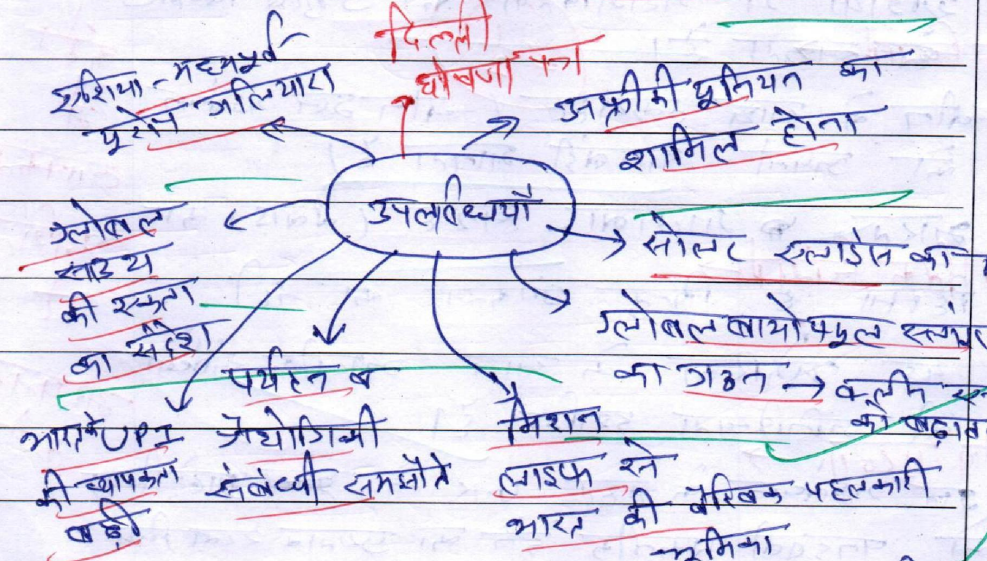 दिल्ली
घोषणा पत्र
एशिया - मध्यपूर्व
यूरोप गलियारा
अफ्रीकी यूनियन का
शामिल होना
उपलब्धियाँ
ग्लोबल
साउथ
की एकता
का संदेश
सोलर एलाइंस का
ग्लोबल बायोफ्यूल एलायंस
का गठन → क्लीन
को बढ़ावा
पर्यटन व
प्रौद्योगिकी
संबंधी समझौते
भारत के UPI
की व्यापकता
बढ़ी
मिशन
लाइफ से
भारत की वैश्विक पहलकारी
भूमिका